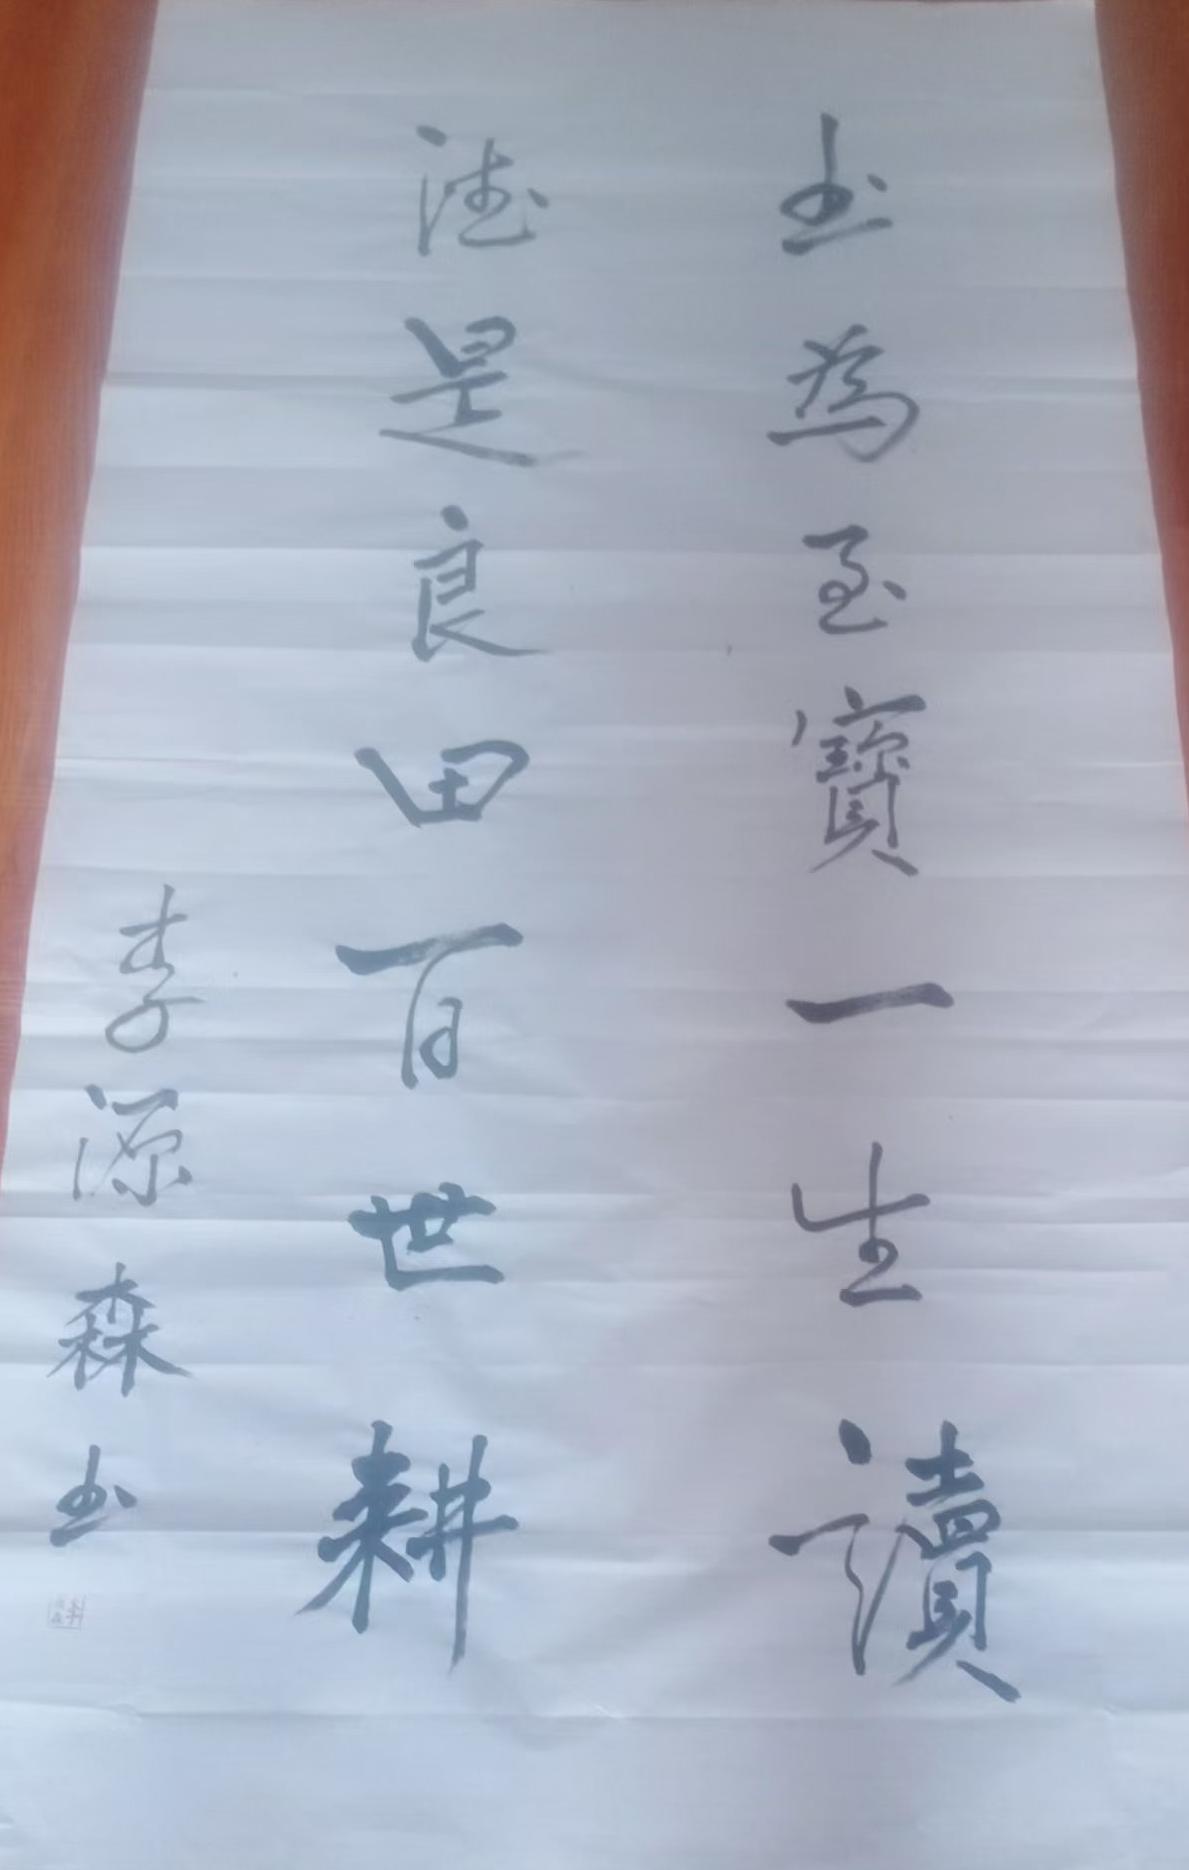 书為至寳一生讀
德是良田百世耕
李源森书